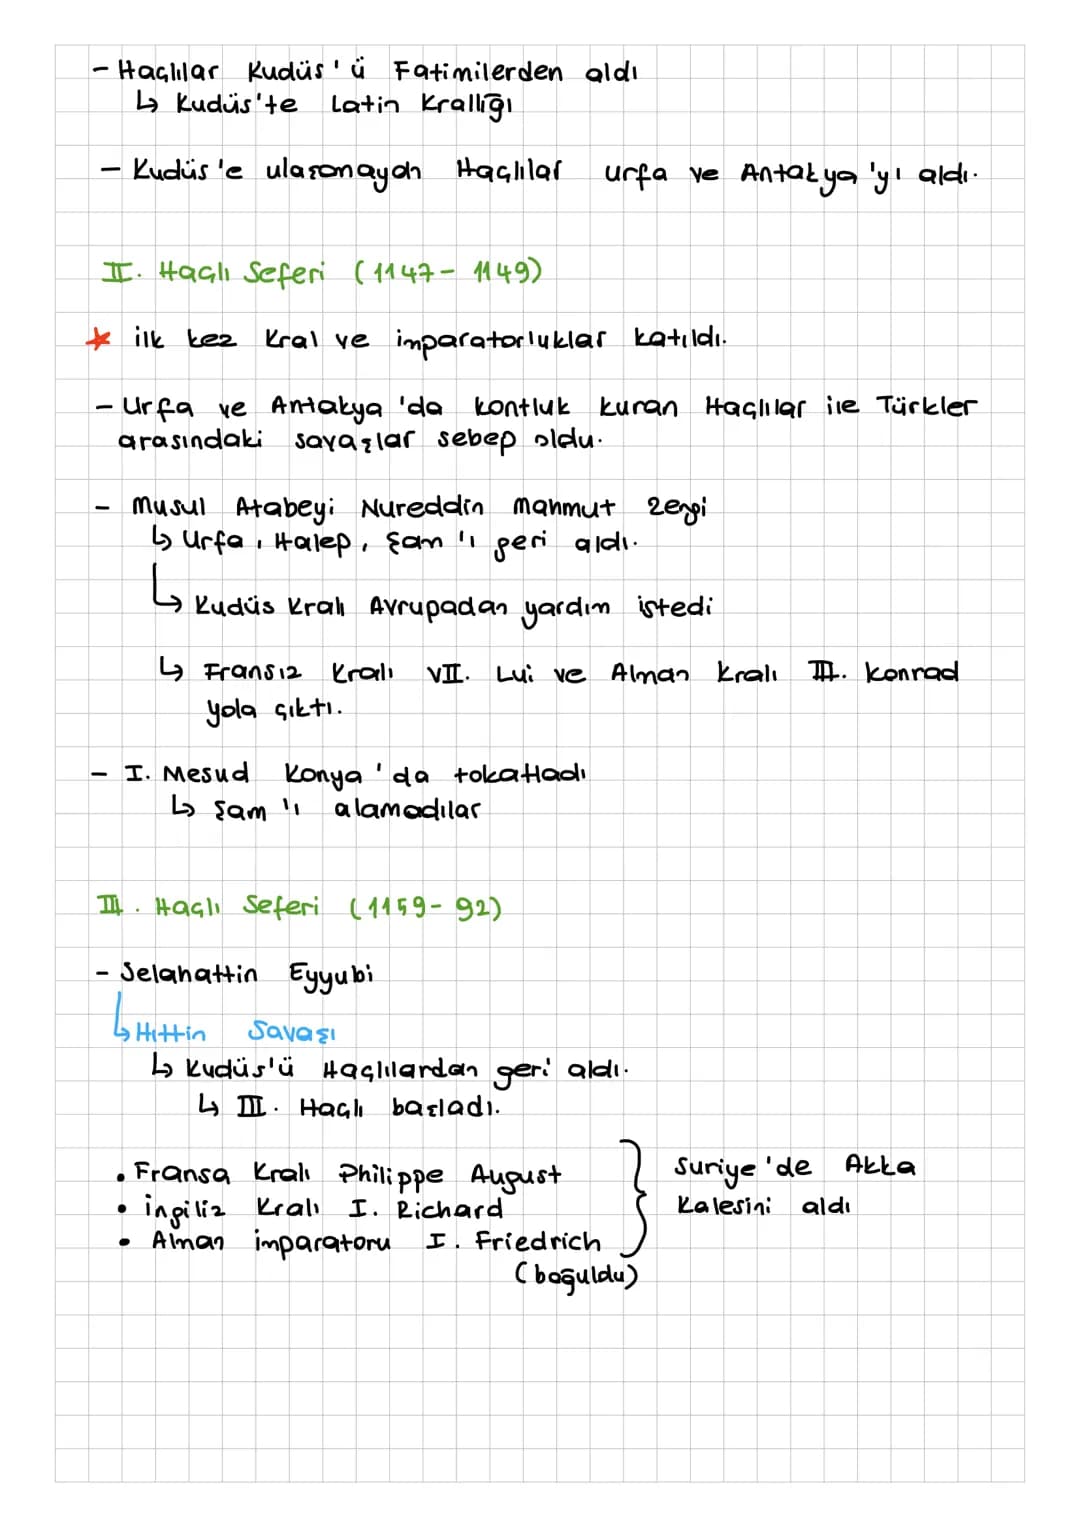 - Haçlılar Kudüs'ü Fatimilerden aldı
↳ Kudüs'te Latin Krallığı
- Kudüs'e ulaşamayan Haçlılar urfa ve Antakya'yı aldı.
II. Haçlı Seferi (1147- 1149)
* ilk kez Kral ve imparatorluklar katıldı.
- Urfa ve Antakya'da kontluk kuran Haçlılar ile Türkler
arasındaki savaşlar sebep oldu.
- Musul Atabeyi Nureddin Mahmut Zengi
↳ Urfa, Halep, Şam'ı geri aldı.
↳ Kudüs Kralı Avrupadan yardım istedi
↳ Fransız Kralı VII. Lui ve Alman Kralı III. Konrad
yola çıktı.
- I. Mesud Konya'da tokatladı
↳ Şam'ı alamadılar
III. Haçlı Seferi (1159-92)
- Selahattin Eyyubi
↳ Hıttin Savaşı
↳ Kudüs'ü Haçlılardan geri aldı.
↳ III. Haçlı başladı.
• Fransa Kralı Philippe August
• ingiliz Kralı I. Richard
• Alman imparatoru I. Friedrich
(boğuldu)
Suriye'de Akka
Kalesini aldı